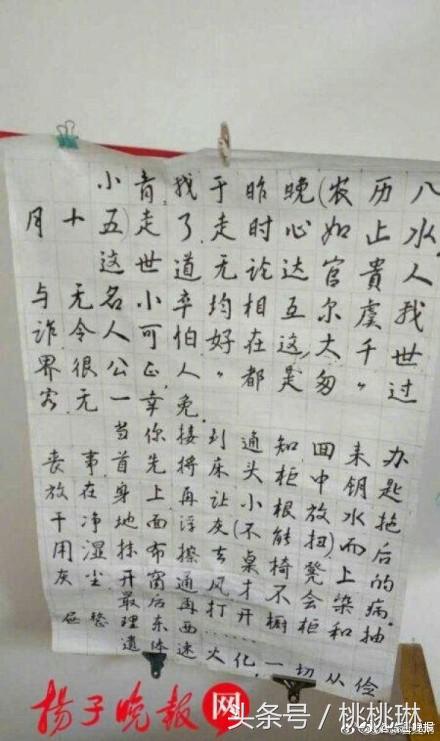 小育.我于昨晚(农历八
月十五)走了.走时心如止水,
这世道无论达官貴人
无名小卒均相互尔虞我
诈令人可怕好在这世
界很公正"人"都是匆匆过
客.无一幸免.
丧事当你接到通知回来办
放在首先将床头柜中钥匙
干净身上再让小根放水拖
用湿地面浮灰(不能扭)而后
灰尘.抹布擦去桌椅凳上的
开窗通风才不会染病.
最后再打开橱柜和抽
屉整理东西……
遗体速火化.一切从俭
扬子晚报网
头条号/桃桃琳